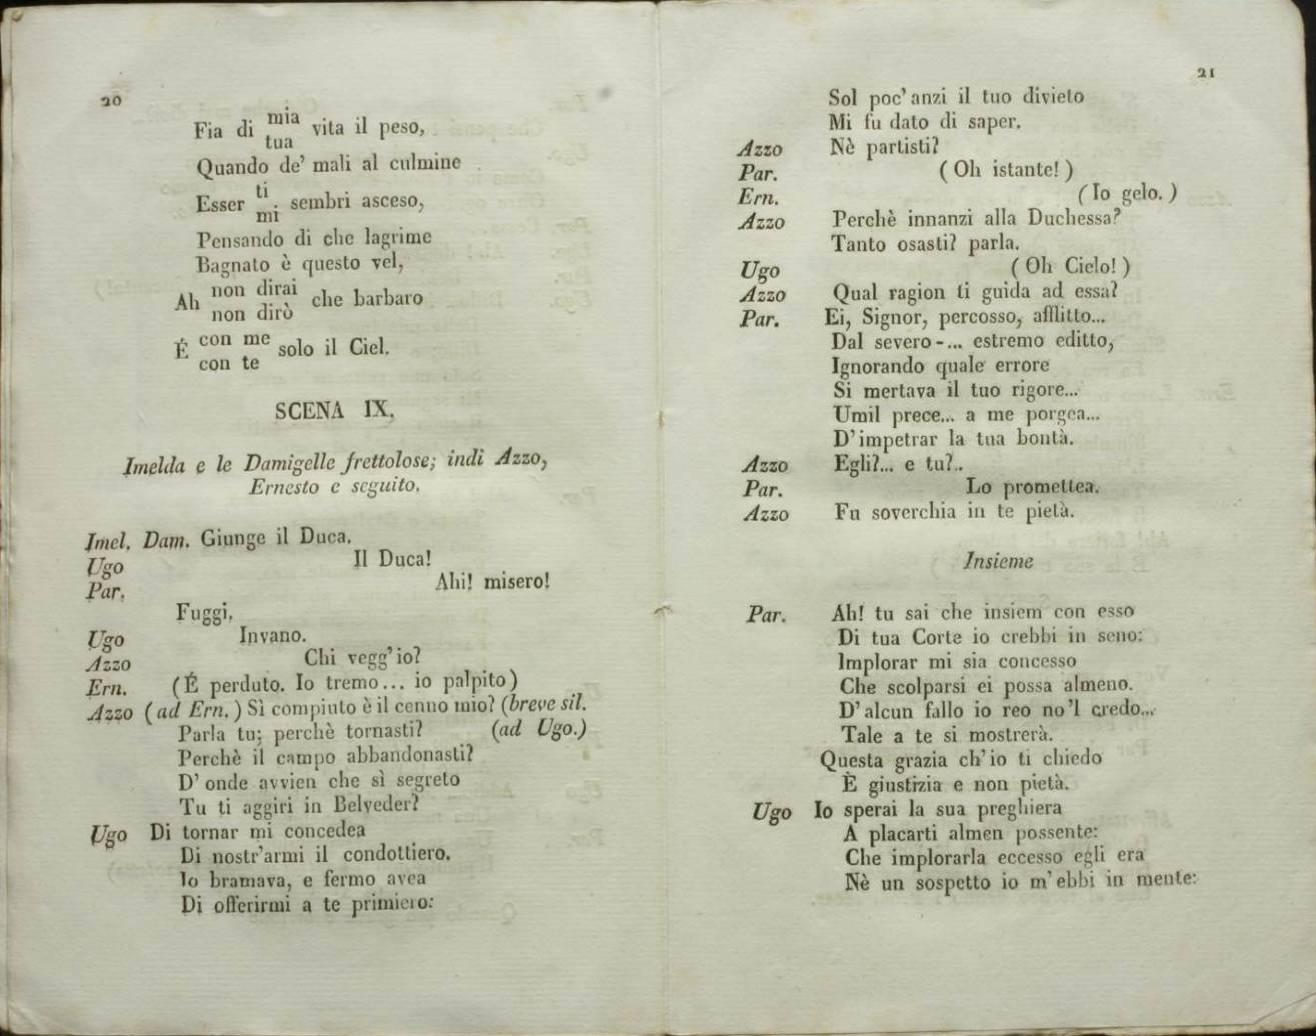 20
Fia di mia vita il peso,
tua
Quando de' mali al culmine
Esser ti sembri asceso,
mi
Pensando di che lagrime
Bagnato è questo vel,
Ah non dirai che barbaro
non dirò
É con me solo il Ciel.
con te
SCENA IX.
Imelda e le Damigelle frettolose; indi Azzo,
Ernesto e seguito.
Imel. Dam. Giunge il Duca.
Ugo Il Duca!
Par. Ahi! misero!
Fuggi.
Ugo Invano.
Azzo Chi vegg'io?
Ern. (É perduto. Io tremo... io palpito)
Azzo (ad Ern.) Sì compiuto è il cenno mio? (breve sil.
Parla tu; perchè tornasti? (ad Ugo.)
Perchè il campo abbandonasti?
D' onde avvien che sì segreto
Tu ti aggiri in Belveder?
Ugo Di tornar mi concedea
Di nostr'armi il condottiero.
Io bramava, e fermo avea
Di offerirmi a te primiero:
21
Sol poc'anzi il tuo divieto
Mi fu dato di saper.
Azzo Nè partisti?
Par. (Oh istante!)
Ern. (Io gelo.)
Azzo Perchè innanzi alla Duchessa?
Tanto osasti? parla.
Ugo (Oh Cielo!)
Azzo Qual ragion ti guida ad essa?
Par. Ei, Signor, percosso, afflitto...
Dal severo-... estremo editto,
Ignorando quale errore
Si mertava il tuo rigore...
Umil prece... a me porgea...
D'impetrar la tua bontà.
Azzo Egli?... e tu?..
Par. Lo promettea.
Azzo Fu soverchia in te pietà.
Insieme
Par. Ah! tu sai che insiem con esso
Di tua Corte io crebbi in seno:
Implorar mi sia concesso
Che scolparsi ei possa almeno.
D'alcun fallo io reo no'l credo...
Tale a te si mostrerà.
Questa grazia ch'io ti chiedo
È giustizia e non pietà.
Ugo Io sperai la sua preghiera
A placarti almen possente:
Che implorarla eccesso egli era
Nè un sospetto io m'ebbi in mente: